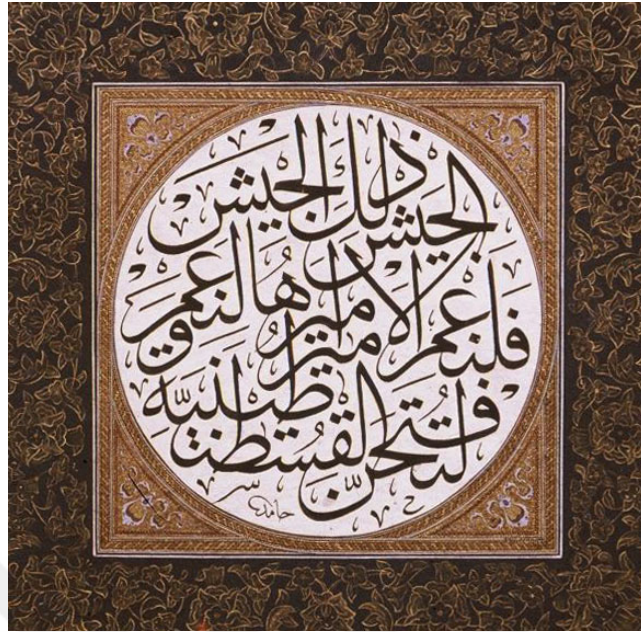 لتفتحن القسطنطينيه
فلنعم الامير اميرها ولنعم
الجيش ذلك الجيش
حامد